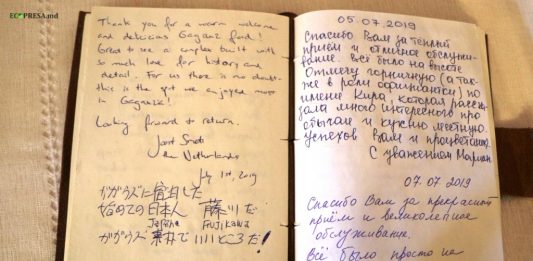 ECOPRESA.md
Thank you for a warm welcome
and delicious Gagauz food!
Great to see a complex built with
so much love for history and
detail. For us there is no doubt:
this is the spot we enjoyed most
in Gagauzia!
Looking forward to return.
Joost Smets
the Netherlands
July 1st, 2019
ガガウズに宿泊した
始めての日本人 藤川だ
Japane FUJIKAWA
ガガウズ 最高で いいところだ!
05.07.2019
Спасибо Вам за теплый
приём и отличное обслужи-
вание. Всё было на высоте
Отмечу горничную (а так-
же в роли официантки) по
имени Кира, которая расска-
зала много интересного про
обычаи и кухню местную.
Успехов Вам и процветания.
С уважением Мариан
07.07.2019
Спасибо Вам за прекрасный
приём и великолепное
обслуживание.
Всё было просто на